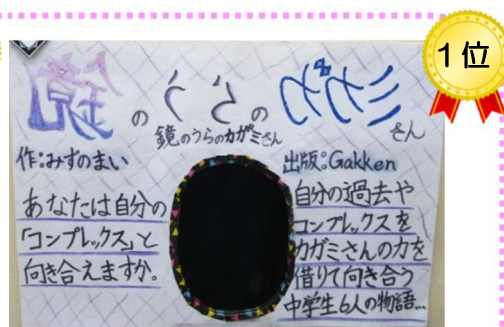 1位
鏡のうらのカガミさん
鏡のうらのカガミさん
作:みずのまい
出版:Gakken
あなたは自分の
「コンプレックス」と
向き合えますか。
自分の過去や
コンプレックスを
カガミさんの力を
借りて向き合う
中学生6人の物語…